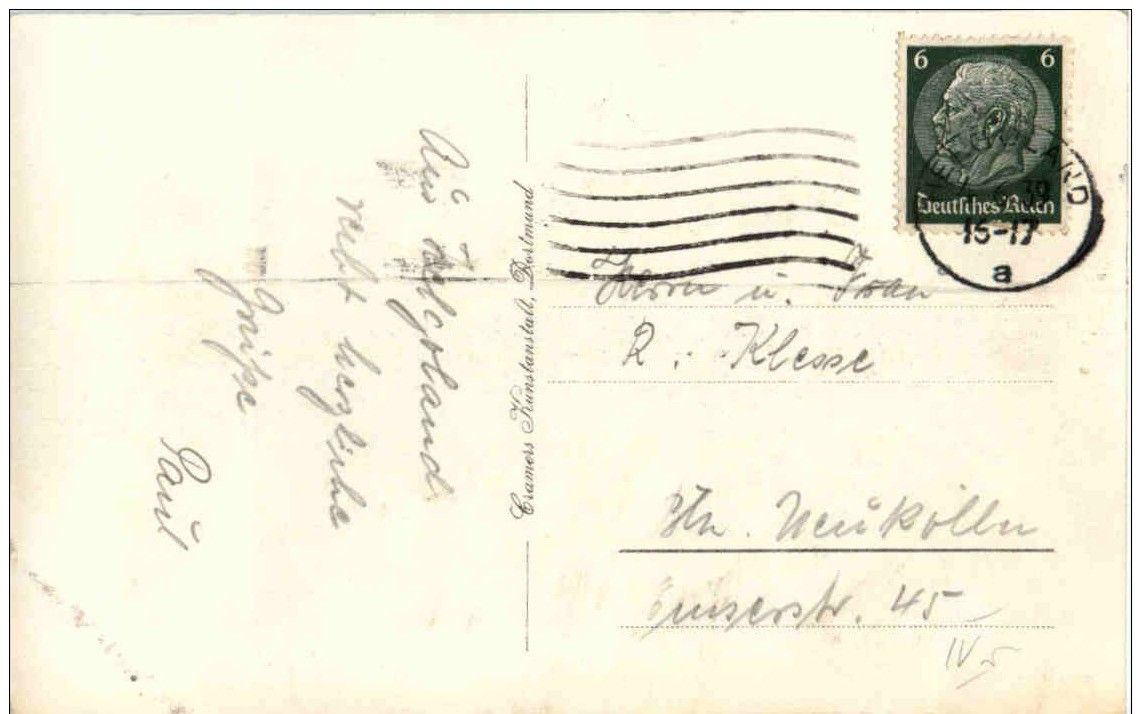 Aus Helgoland
recht herzliche
Grüße
Paul
Cramers Kunstanstalt, Dortmund
6 6
Deutsches Reich
HELGOLAND
15-17
a
Herrn u. Frau
R. Klesse
Bln. Neukölln
Emserstr. 45
IV